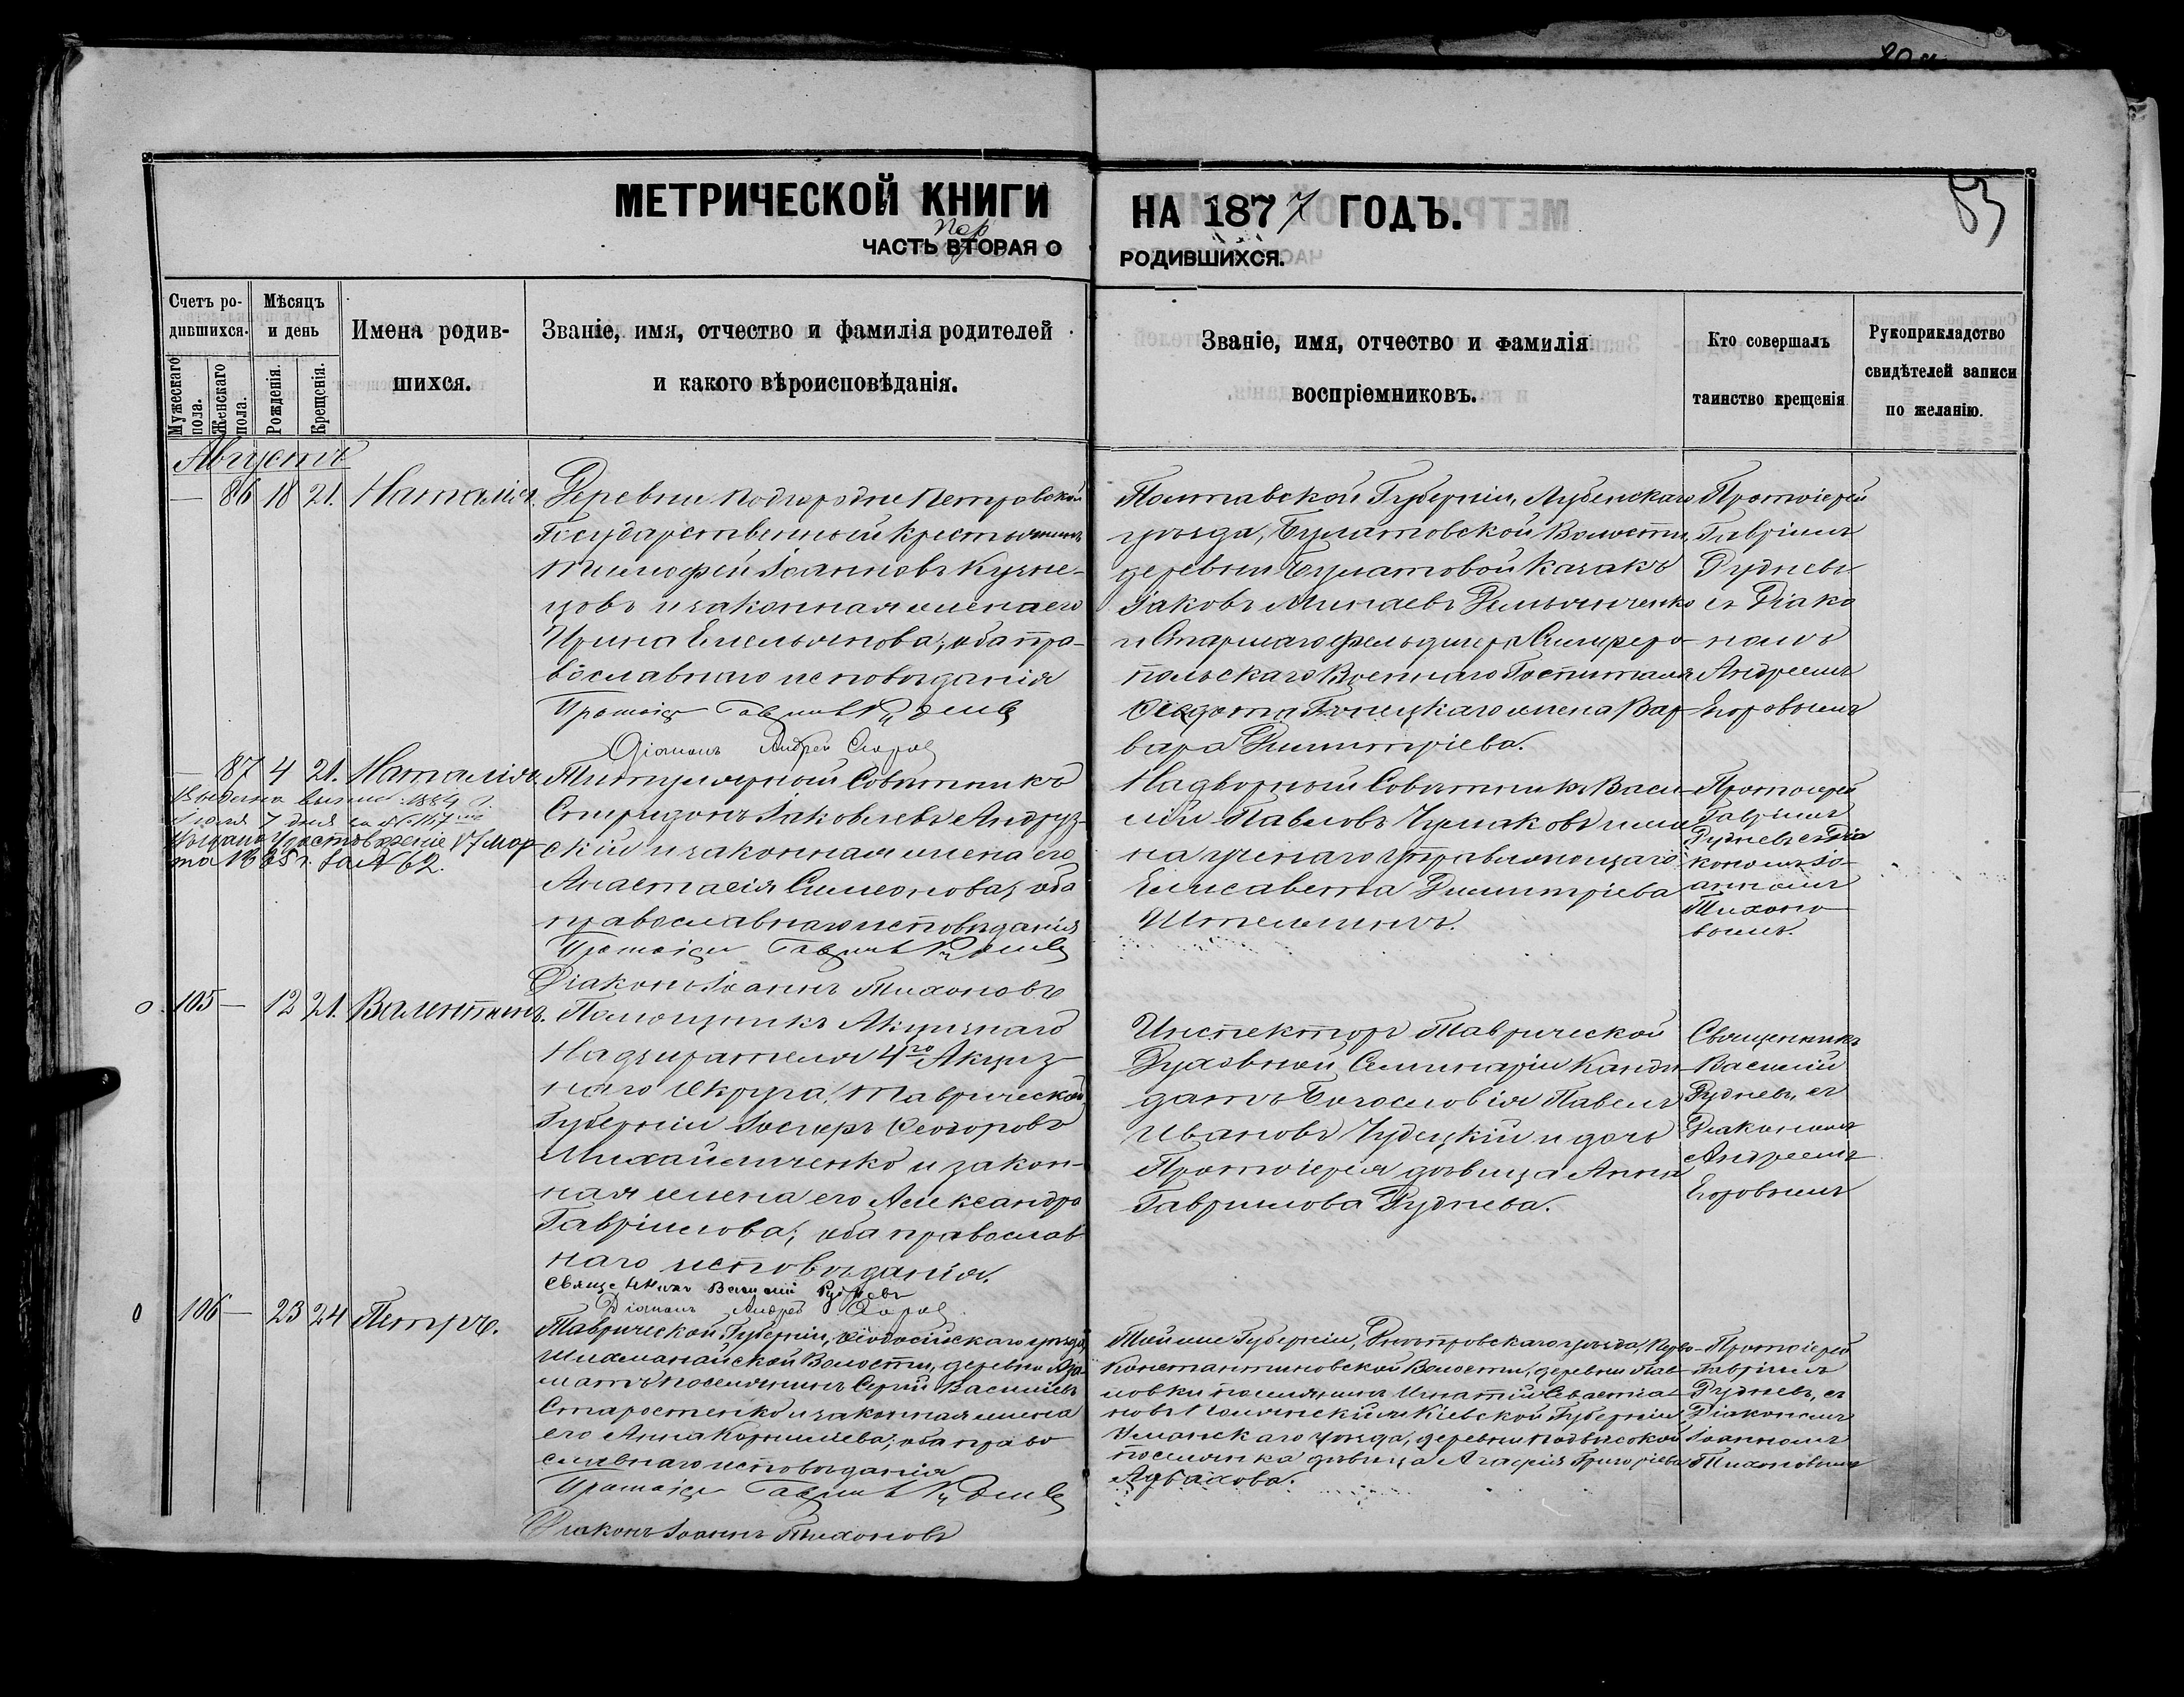 МЕТРИЧЕСКОЙ КНИГИ
НА 1877 ГОДЪ.
83
пер
ЧАСТЬ ВТОРАЯ О
РОДИВШИХСЯ.
Счетъ ро-
дившихся.
Мужескаго пола.
Женскаго пола.
Мѣсяцъ
и день
Рожденія.
Крещенія.
Имена родив-
шихся.
Званіе, имя, отчество и фамилія родителей
и какого вѣроисповѣданія.
Званіе, имя, отчество и фамилія
воспріемниковъ.
Кто совершалъ
таинство крещенія
Рукоприкладство
свидѣтелей записи
по желанію.
Августъ
— 86 18 21. Наталія.
Деревни Подгородне Петровской
Государственный крестьянинъ
Тимофей Іоанновъ Кузне-
цовъ и законная жена его
Ирина Емельянова; оба пра-
вославнаго исповѣданія
Протоіерей Гавріилъ Рудневъ
Діаконъ Андрей Егоровъ
Полтавской Губерніи, Лубенскаго
уѣзда, Булатовской Волости,
деревни Булатовой казакъ
Іаковъ Минаевъ Демьянченко
и Старшаго фельдшера Симферо-
польскаго Военнаго Госпиталя
жена Вар-
вара Димитріева.
Протоіерей
Гавріилъ
Рудневъ
съ Діако
номъ
Андреемъ
Егоровымъ
— 87 4 21. Наталія.
Выдана выпис: 1884 г.
Іюля 7 дня за № 117
Выдано удостовѣреніе 17 Мар-
та 1885 г. за № 62.
Титулярный Совѣтникъ
Спиридонъ Іаковлевъ Андруз-
скій и законная жена его
Анастасія Симеонова; оба
православнаго исповѣданія
Протоіерей Гавріилъ Рудневъ
Діаконъ Іоаннъ Тихоновъ
Надворный Совѣтникъ Васи-
лій Павловъ Чумаковъ и же
на управляющаго
Елисавета Димитріева
Протоіерей
Гавріилъ
Рудневъ съ Діа
кономъ Іо-
анномъ
Тихоно-
вымъ.
о 105 — 12 21. Валентинъ.
Помощникъ Акцизнаго
Надзирателя 4го Акциз-
наго Округа, Таврической
Губерніи Іосифъ Ѳеодоровъ
Михайличенко и закон-
ная жена его Александра
Гавріилова; оба православ
наго исповѣданія.
Священникъ Василій Рудневъ
Діаконъ Андрей Егоровъ
Инспекторъ Таврической
Духовной Семинаріи Канди-
датъ Богословія Павелъ
Ивановъ Чудецкій и дочь
Протоіерея дѣвица Анна
Гавріилова Руднева.
Священникъ
Василій
Рудневъ, съ
Діакономъ
Андреемъ
Егоровымъ
о 106 — 23 24 Петръ.
Таврической Губерніи, Ѳеодосійскаго уѣзда,
Волости, деревни Аза-
матъ поселянинъ Сергій Василіевъ
Старостенко и законная жена
его Анна Корниліева; оба право
славнаго исповѣданія
Протоіерей Гавріилъ Рудневъ
Діаконъ Іоаннъ Тихоновъ
Той же Губерніи, Днѣпровскаго уѣзда, Перво-
константиновской Волости, деревни Пав-
ловки поселянинъ Игнатій Севастіа-
новъ и Кіевской Губерніи
Уманскаго уѣзда, деревни Подвысокой
поселянка дѣвица Агафія Григоріева
Протоіерей
Гавріилъ
Рудневъ, съ
Діакономъ
Іоанномъ
Тихоновымъ